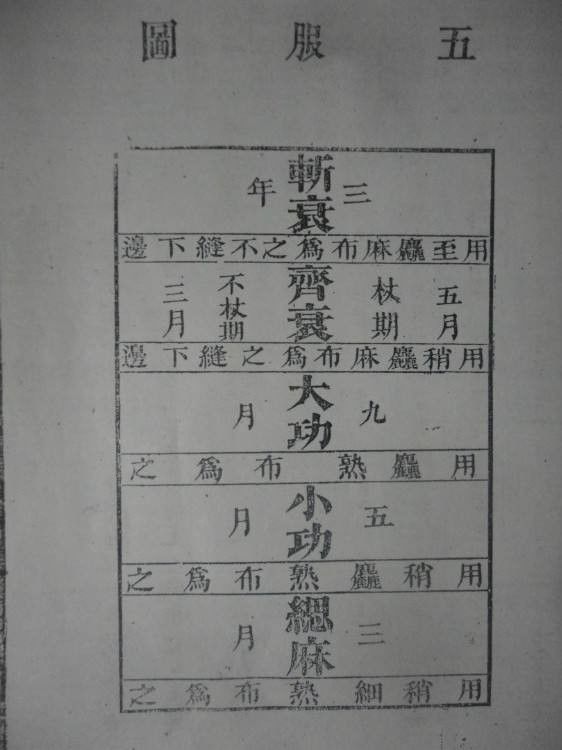 五服圖
斬衰
三年
用至麤麻布為之不縫下邊
齊衰
五月
杖期
不杖期
三月
用稍麤麻布為之縫下邊
大功
九月
用麤熟布為之
小功
五月
用稍麤熟布為之
緦麻
三月
用稍細熟布為之